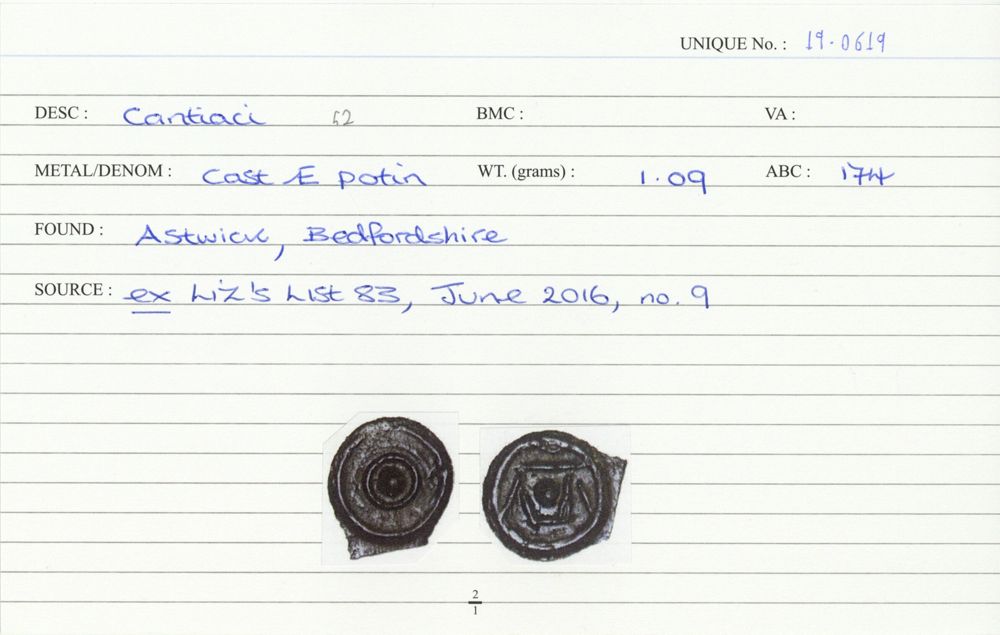 UNIQUE No. : 19.0619
DESC : Cantiaci 52 BMC : VA :
METAL/DENOM : Cast Æ potin WT. (grams) : 1.09 ABC : 174
FOUND : Astwick, Bedfordshire
SOURCE : ex Liz's List 83, June 2016, no. 9
2
1